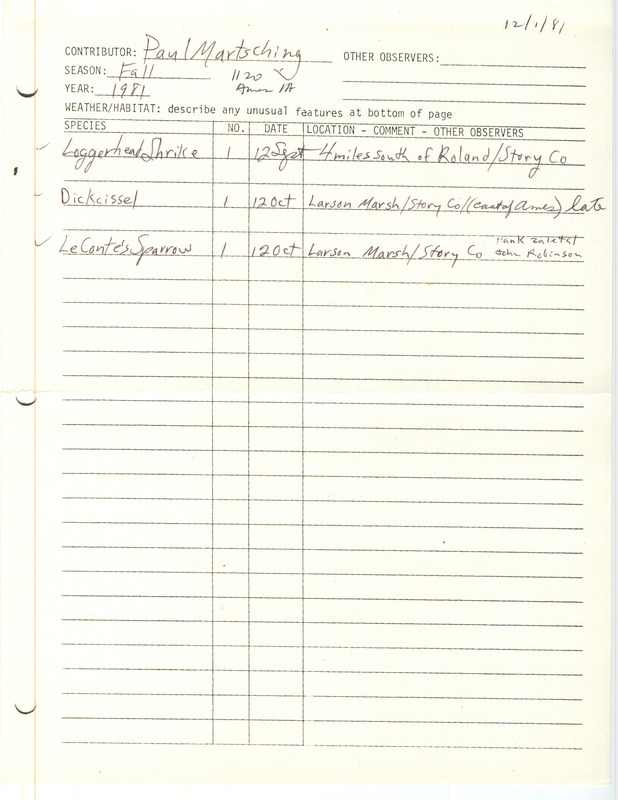 12/1/81
CONTRIBUTOR: Paul Martsching OTHER OBSERVERS:
SEASON: Fall 1120
YEAR: 1981 Ames IA
WEATHER/HABITAT: describe any unusual features at bottom of page
SPECIES NO. DATE LOCATION - COMMENT - OTHER OBSERVERS
Loggerhead Shrike 1 12 Sept 4 miles south of Roland/Story Co
Dickcissel 1 12 Oct Larson Marsh/Story Co/(east of Ames) late
Hank Zaletel
LeConte's Sparrow 1 12 Oct Larson Marsh/Story Co John Robinson